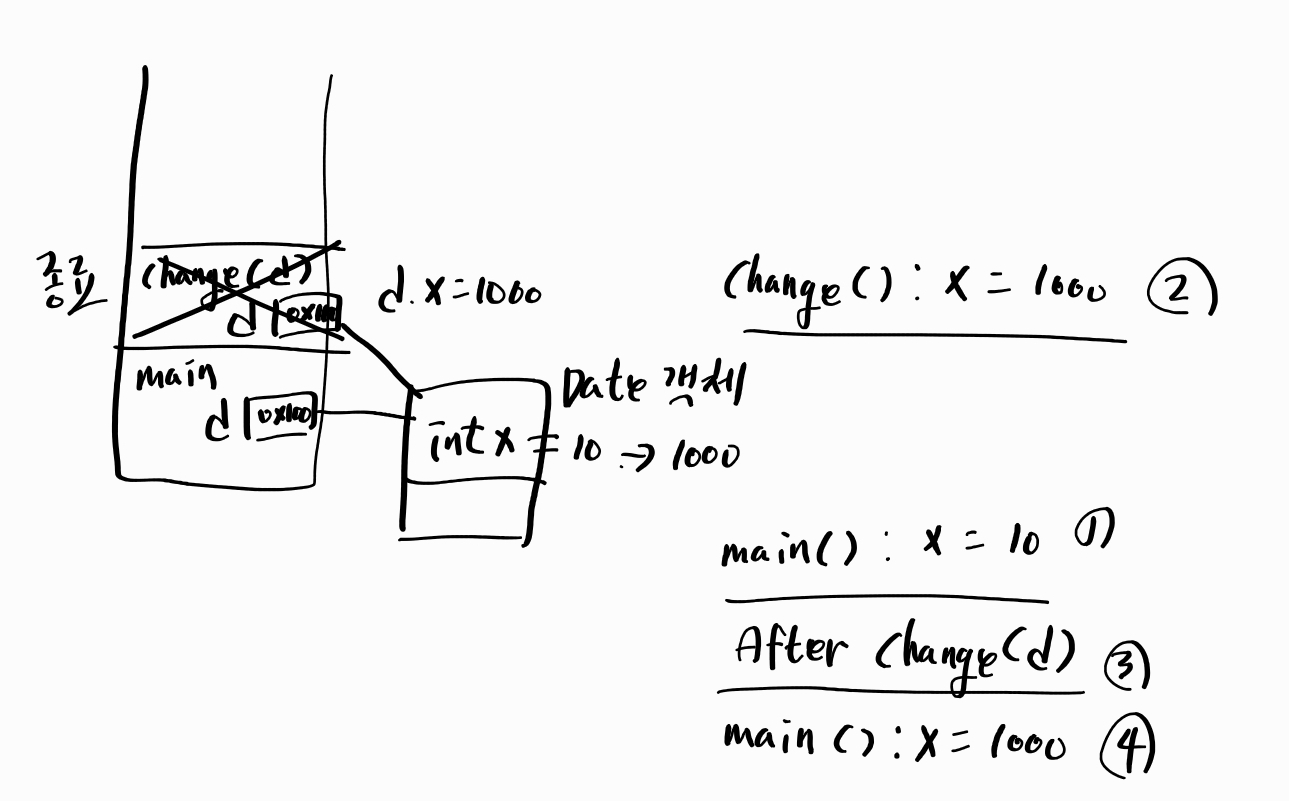 종료
change(d)
d 0x100
d.x=1000
main
d 0x100
Date 객체
int x = 10 → 1000
change() : x = 1000 ②
main() : x = 10 ①
After change(d) ③
main() : x = 1000 ④